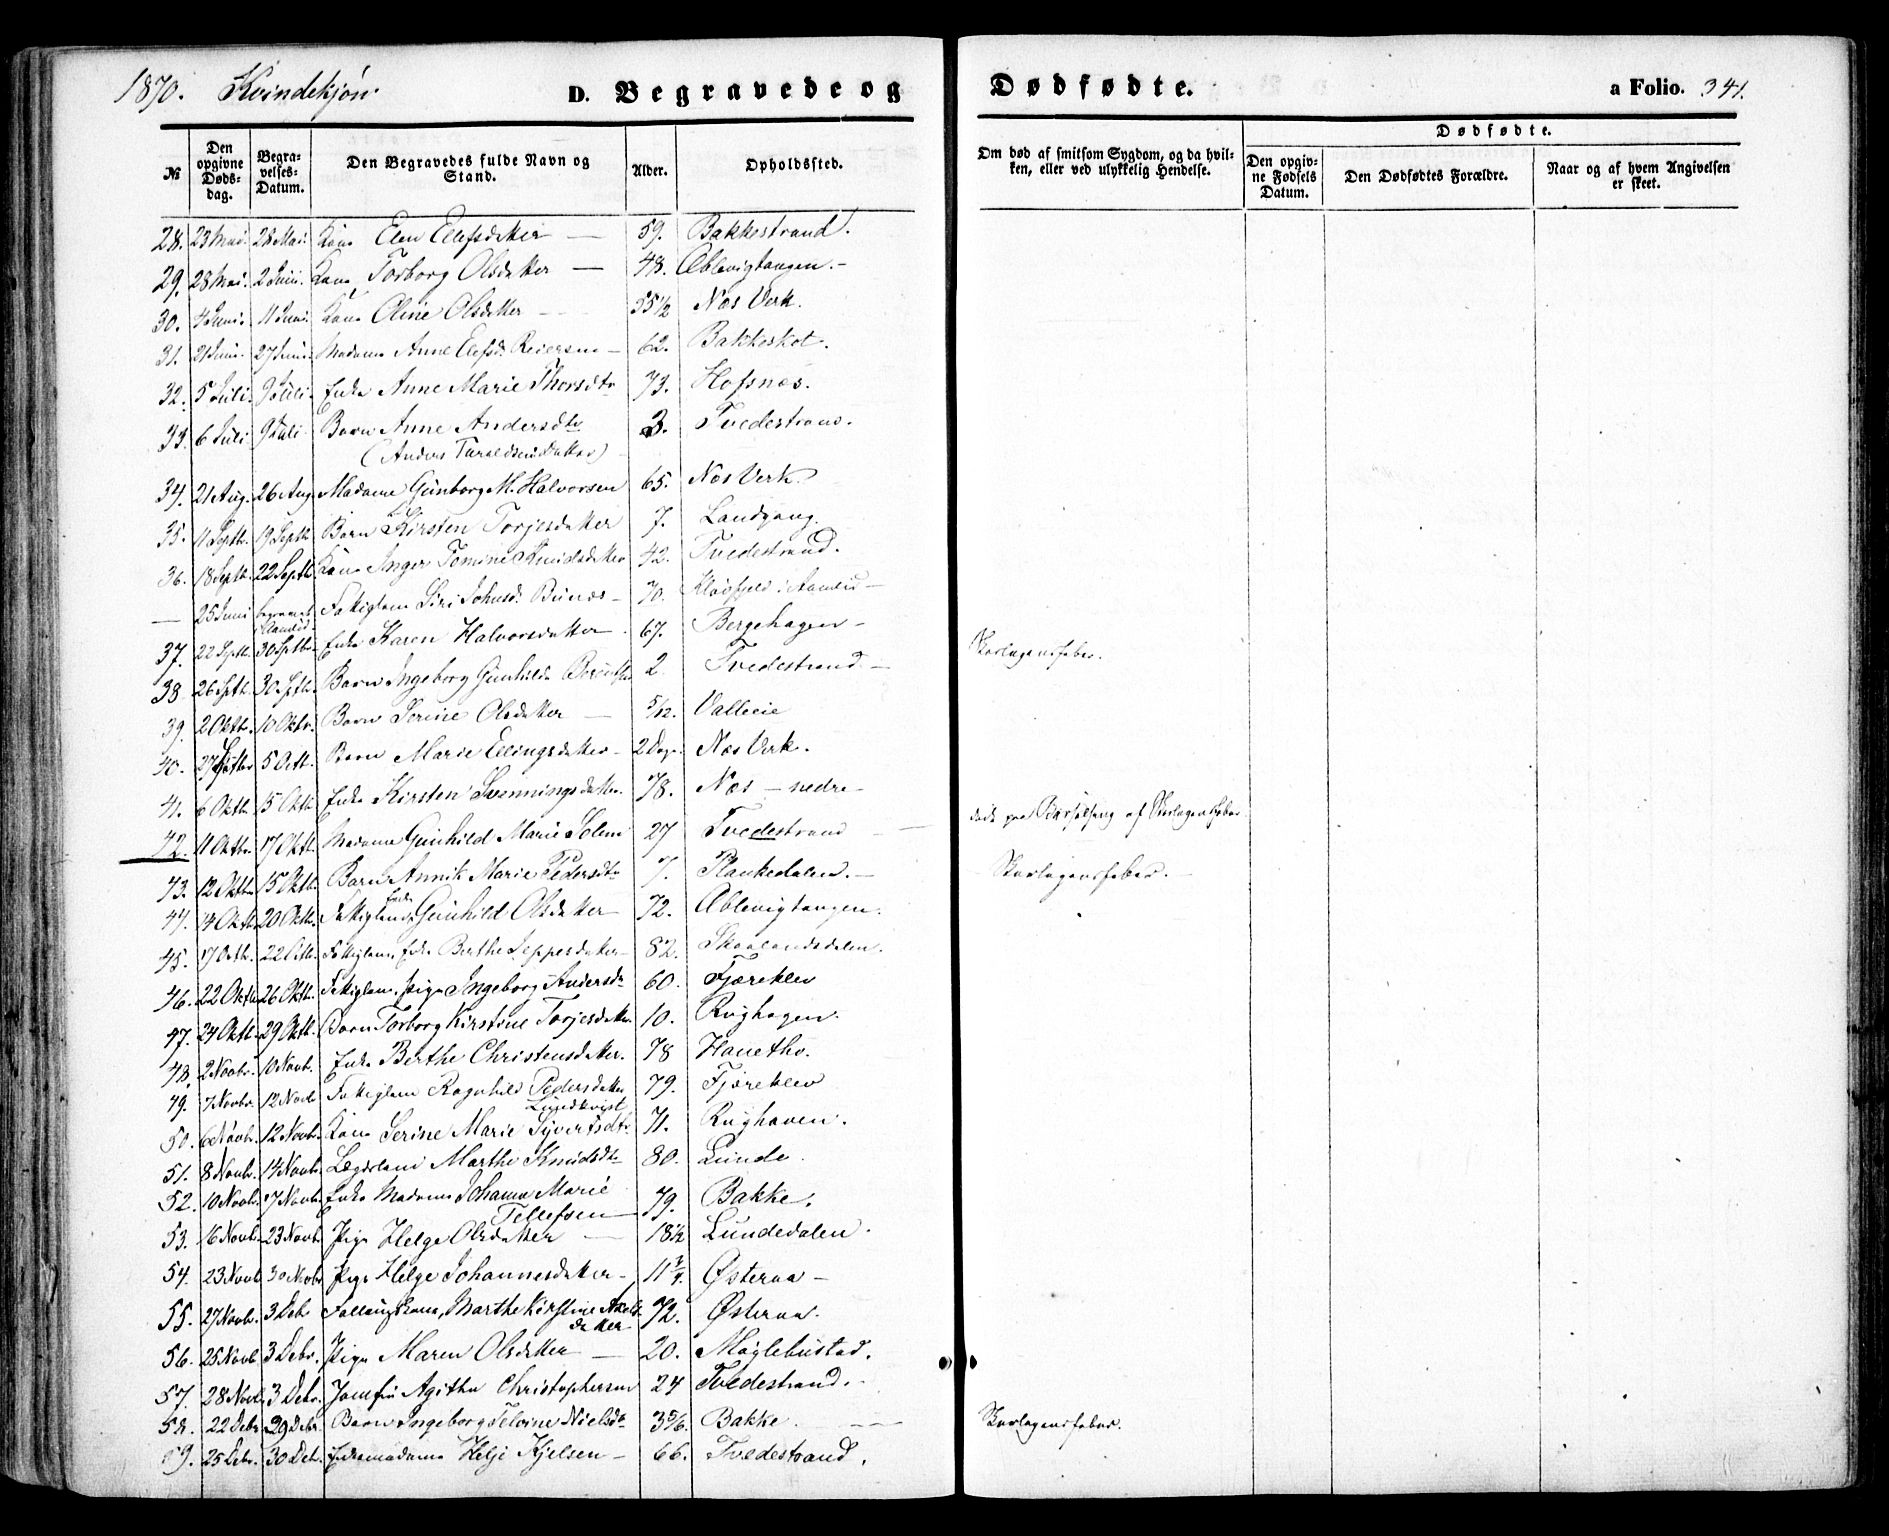 1870. Kvindekjøn. D. Begravede og Dødfødte. a Folio. 341.
№ Den opgivne Dødsdag. Begravelses-Datum. Den Begravedes fulde Navn og Stand. Alder. Opholdssted. Om død af smitsom Sygdom, og da hvilken, eller ved ulykkelig Hendelse. Dødfødte. Den opgivne Fødsels Datum. Den Dødfødtes Forældre. Naar og af hvem Angivelsen er skeet.
28. 23 Mai. 28 Mai. Kone Elen Elefsdatter — 59. Bakkestrand.
29. 28 Mai. 2 Juni. Kone Torborg Olsdatter — 48. Ablevigtangen. –
30. 4 Juni. 11 Juni. Kone Oline Olsdatter 55 1/2 Næs Verk.
31. 21 Juni. 27 Juni. Madame Anne Elefsd. Reiersen — 62. Bakkeskot.
32. 5 Juli. 9 Juli. Enke Anne Marie Thorsdtr 73. Hofsnæs.
33. 6 Juli. 9 Juli Barn Anne Andersdtr 3. Tvedestrand.
(Anders Taraldsens Datter)
34. 21 Aug. 26 Aug. Madame Gunborg M. Halvorsen 65. Næs Verk.
35. 11 Septb. 19 Septb. Barn Kirsten Torjesdatter 7. Landgang.
36. 18 Septb. 22 Septb. Kone Inger Tomine Knudsdatter 42. Tvedestrand.
— 25 Juni begravet i Aamlid. Fattiglem Siri Johnsd. Bunes – 70. Kløvfjeld i Aamlid –
37. 22 Septb. 30 Septbr. Enke Karen Halvorsdatter. 67. Bergehagen –
38 26 Septb. 30 Septb. Barn Ingeborg Gunhilde 2 Tvedestrand. — Skarlagensfeber.
39. 2 Oktbr. 10 Oktbr. Barn Serine Olsdatter — 5/12. Valleeie
40. 27 Septbr 5 Octb. Barn Marie Ellingsdatter – 2 Dage. Næs Verk.
41. 6 Oktb. 15 Oktb. Enke Kirsten Svenningsdatter. 78. Næs — nedre –
42. 11 Oktbr. 17 Oktb. Madame Gunhild Marie Solem 27 Tvedestrand — døde paa Barselseng af Skarlagensfeber.
43. 12 Oktbr. 15 Oktb. Barn Annik Marie Pedersdtr 7. Plankedalen. — Skarlagensfeber. –
44. 14 Oktb. 20 Oktb. Fattiglem, Enke Gunhild Olsdatter 72. Ablevigtangen.
45. 17 Octb. 22 Octb. Fattiglem, Enke Berthe Jeppesdatter – 82. Skaalandsdalen.
46. 22 Oktb. 26 Oktb. Fattiglem. Pige Ingeborg Andersdtr 60. Fjæreklev
47. 24 Oktb. 29 Oktb. Barn Torborg Kirstine Torjesdatter. 10. Rughagen.
48. 2 Novbr. 10 Novb. Enke Berthe Christensdatter. 78 Hanetho.
49. 7 Novbr. 12 Novb Fattiglem Ragnhild Pedersdatter 79. Fjæreklev
Lundkvist
50. 6 Novbr. 12 Novbr. Kone Serine Marie Syvertsdtr 71. Rughaven.
51. 8 Novbr. 14 Novb. Lægdslem Marthe Knudsdtr 80. Lunde.
52. 10 Novbr. 17 Novbr. Enke Madame Johanne Marie 79. Bakke.
Tellefsen
53. 16 Novbr. 23 Novb. Pige Helge Olsdatter — 18 1/2 Lundedalen.
54. 23 Novb 30 Novbr Pige Helge Johannesdatter – 11 3/4. Østeraa –
55. 27 Novb. 3 Deb. Marthe Kirstine 72. Østeraa.
datter
56. 25 Novb. 3 Debr. Pige Maren Olsdatter — 20. Møglebustad.
57. 28 Novb. 3 Debr. Jomfru Agithe Christophersen 24 Tvedestrand.
58. 22 Debr. 29 Debr. Barn Ingeborg Telvine Nielsdtr 3 5/6. Bakke. — Skarlagensfeber.
59. 25 Debr. 30 Debr. Enkemadame Helje Kjelsen – 66. Tvedestrand.